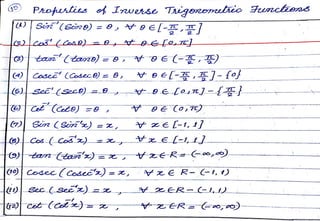 (10) Properties of Inverse Trigonometric Functions
(1) Sin⁻¹(Sinθ) = θ, ∀ θ ∈ [-π/2, π/2]
(2) Cos⁻¹(Cosθ) = θ, ∀ θ ∈ [0, π]
(3) tan⁻¹(tanθ) = θ, ∀ θ ∈ (-π/2, π/2)
(4) Cosec⁻¹(Cosecθ) = θ, ∀ θ ∈ [-π/2, π/2] - {0}
(5) Sec⁻¹(Secθ) = θ, ∀ θ ∈ [0, π] - {π/2}
(6) Cot⁻¹(Cotθ) = θ, ∀ θ ∈ (0, π)
(7) Sin(Sin⁻¹x) = x, ∀ x ∈ [-1, 1]
(8) Cos(Cos⁻¹x) = x, ∀ x ∈ [-1, 1]
(9) tan(tan⁻¹x) = x, ∀ x ∈ R = (-∞, ∞)
(10) Cosec(Cosec⁻¹x) = x, ∀ x ∈ R - (-1, 1)
(11) Sec(Sec⁻¹x) = x, ∀ x ∈ R - (-1, 1)
(12) Cot(Cot⁻¹x) = x, ∀ x ∈ R = (-∞, ∞)